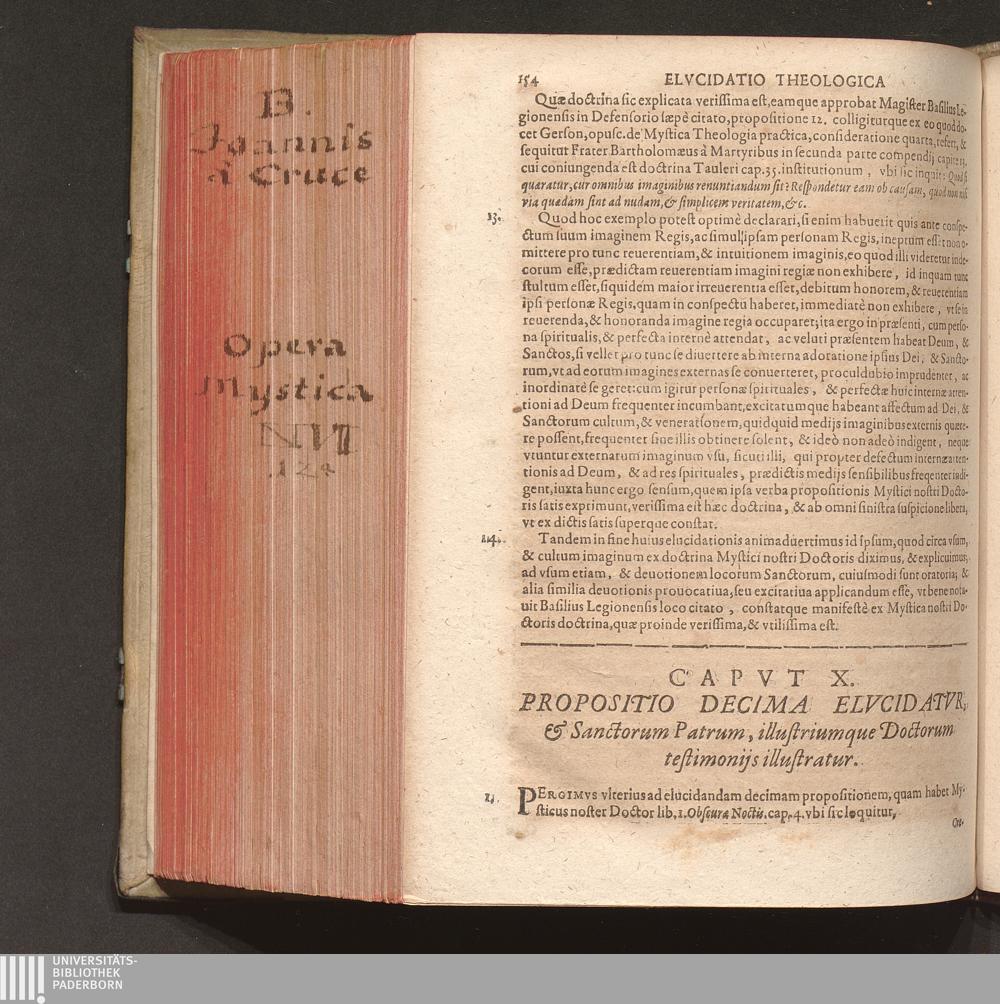 B.
Joannis
à Cruce
Opera
Mystica
NVI
124
154 ELVCIDATIO THEOLOGICA
Quæ doctrina sic explicata verissima est, eamque approbat Magister Basilius Le-
gionensis in Defensorio sæpè citato, propositione 12. colligiturque ex eo quod do-
cet Gerson, opusc. de Mystica Theologia practica, consideratione quarta, refert, &
sequitur Frater Bartholomæus à Martyribus in secunda parte compendij capite 11.
cui coniungenda est doctrina Tauleri cap. 35. institutionum, vbi sic inquit: Quod si
quæratur, cur omnibus imaginibus renuntiandum sit? Respondetur eam ob causam, quod non nisi
via quædam sint ad nudam, & simplicem veritatem, &c.
13. Quod hoc exemplo potest optimè declarari, si enim habuerit quis ante conspe-
ctum suum imaginem Regis, ac simul ipsam personam Regis, ineptum esset non o-
mittere pro tunc reuerentiam, & intuitionem imaginis, eo quod illi videretur inde-
corum esse, prædictam reuerentiam imagini regiæ non exhibere, id inquam tunc
stultum esset, siquidem maior irreuerentia esset, debitum honorem, & reuerentiam
ipsi personæ Regis, quam in conspectu haberet, immediatè non exhibere, vt se in
reuerenda, & honoranda imagine regia occuparet; ita ergo in præsenti, cum perso-
na spiritualis, & perfecta internè attendat, ac veluti præsentem habeat Deum, &
Sanctos, si vellet pro tunc se diuertere ab interna adoratione ipsius Dei, & Sancto-
rum, vt ad eorum imagines externas se conuerteret, proculdubio imprudenter, ac
inordinatè se gereret: cum igitur personæ spirituales, & perfectæ huic internæ atten-
tioni ad Deum frequenter incumbant, excitatumque habeant affectum ad Dei, &
Sanctorum cultum, & venerationem, quidquid medijs imaginibus externis quære-
re possent, frequenter sine illis obtinere solent, & ideò non adeò indigent, neque
vtuntur externarum imaginum vsu, sicuti illi, qui propter defectum internæ atten-
tionis ad Deum, & ad res spirituales, prædictis medijs sensibilibus freqenter indi-
gent, iuxta hunc ergo sensum, quem ipsa verba propositionis Mystici nostri Docto-
ris satis exprimunt, verissima est hæc doctrina, & ab omni sinistra suspicione libera,
vt ex dictis satis superque constat.
14. Tandem in fine huius elucidationis animaduertimus id ipsum, quod circa vsum,
& cultum imaginum ex doctrina Mystici nostri Doctoris diximus, & explicuimus,
ad vsum etiam, & deuotionem locorum Sanctorum, cuiusmodi sunt oratoria; &
alia similia deuotionis prouocatiua, seu excitatiua applicandum esse, vt bene nota-
uit Basilius Legionensis loco citato, constatque manifestè ex Mystica nostri Do-
ctoris doctrina, quæ proinde verissima, & vtilissima est.
CAPVT X.
PROPOSITIO DECIMA ELVCIDATVR,
& Sanctorum Patrum, illustriumque Doctorum
testimonijs illustratur.
PERGIMVS vlterius ad elucidandam decimam propositionem, quam habet My-
sticus noster Doctor lib. 1. Obscuræ Noctis. cap. 4. vbi sic loquitur,
UNIVERSITÄTS-
BIBLIOTHEK
PADERBORN